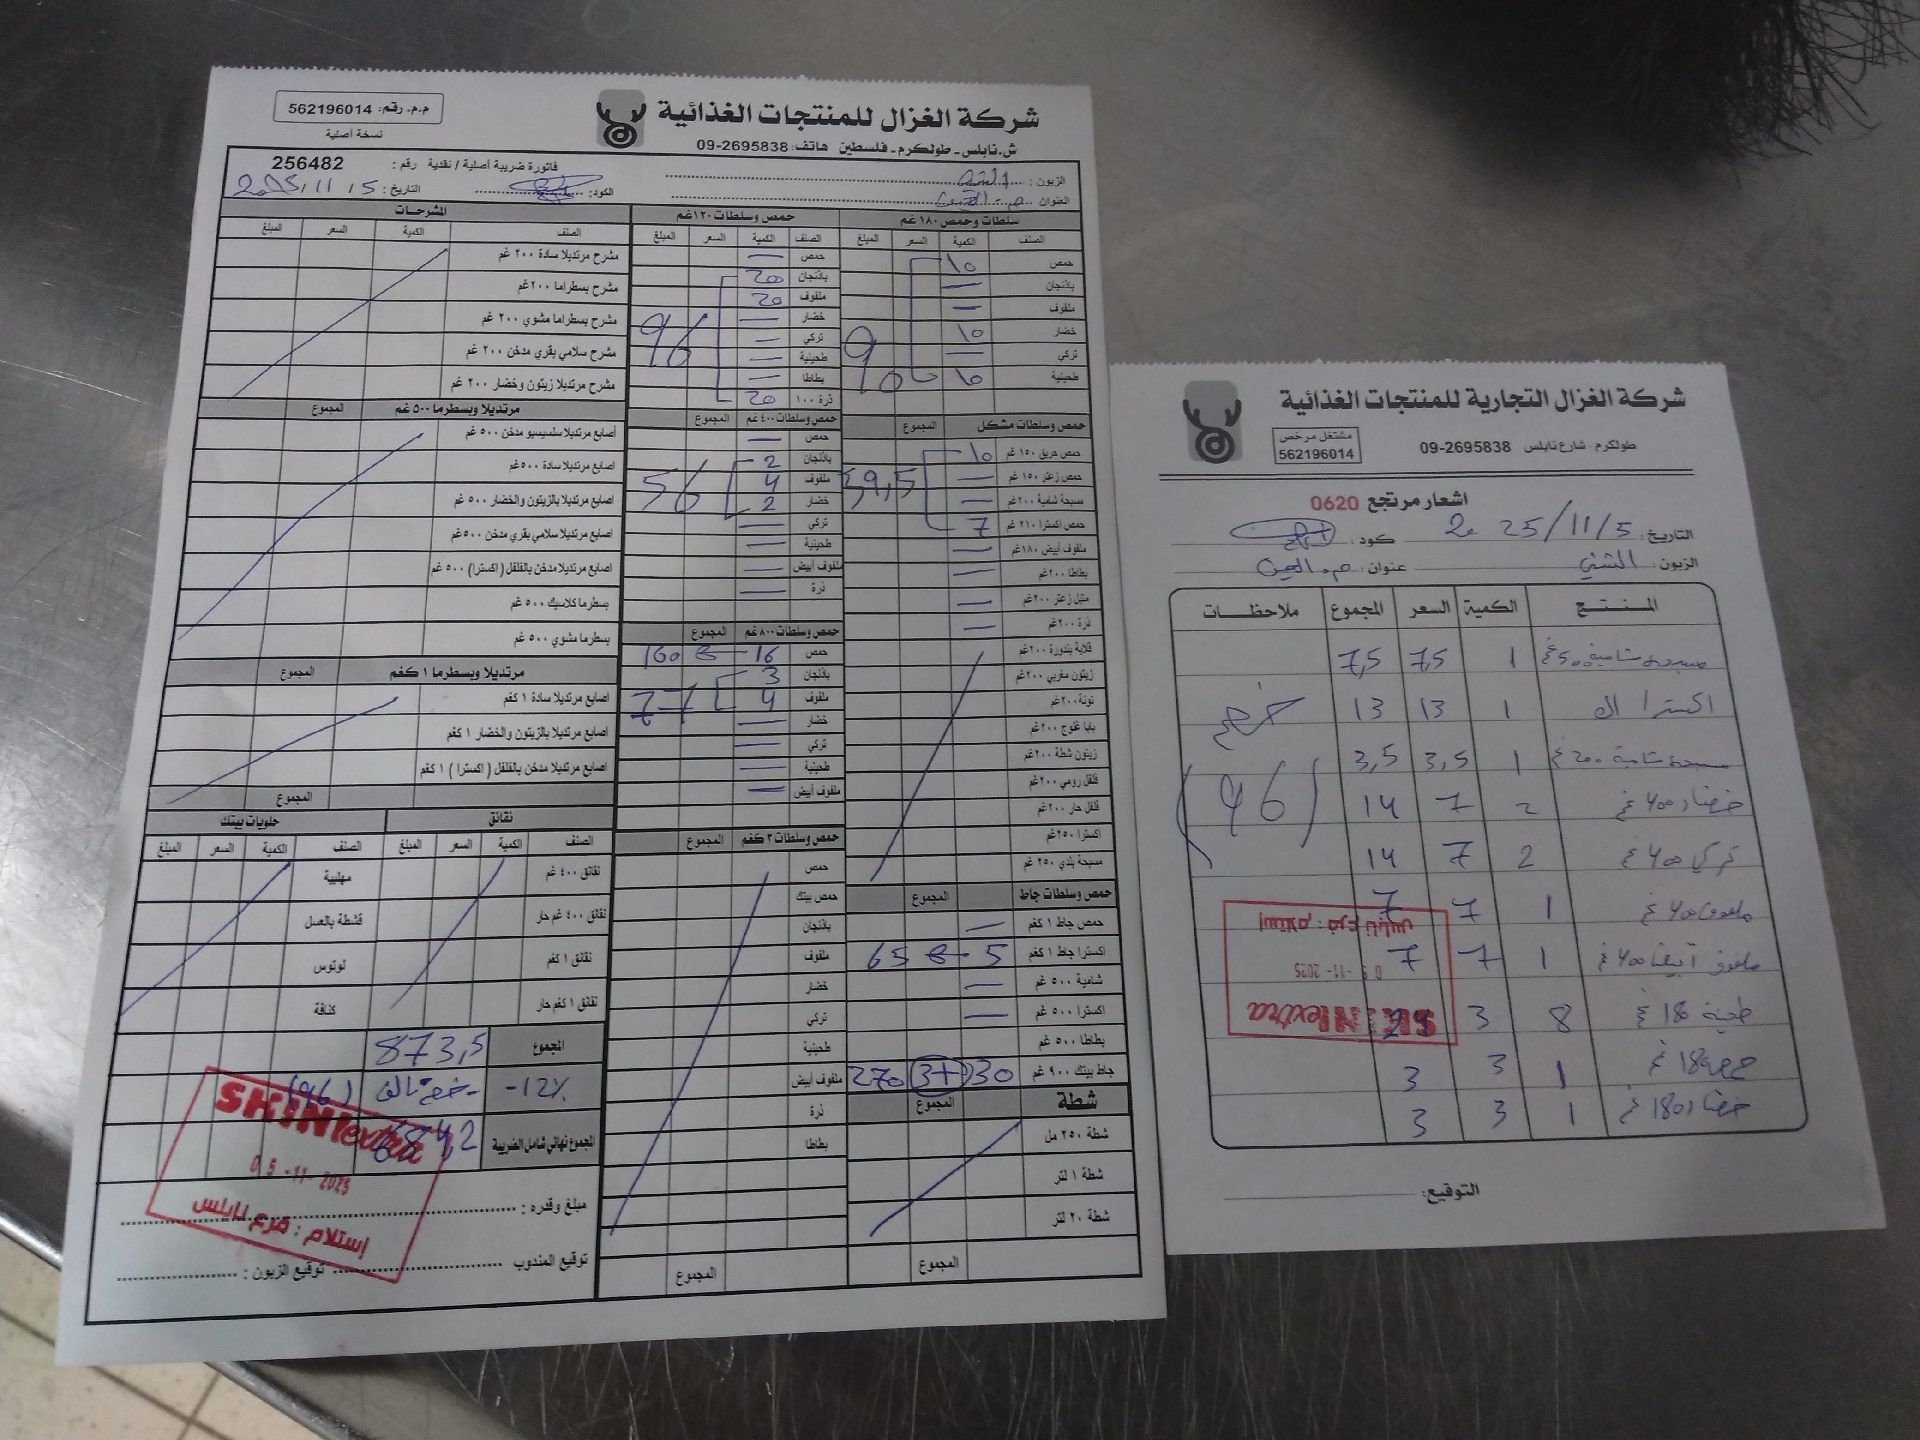 م.م. رقم: 562196014
نسخة أصلية
شركة الغزال للمنتجات الغذائية
ش.نابلس - طولكرم - فلسطين هاتف: 09-2695838
فاتورة ضريبة أصلية / نقدية رقم: 256482
الزبون:
العنوان
الكود:
التاريخ: 2025/11/5
سلطات وحمص ١٨٠ غم
الصنف الكمية السعر المبلغ
حمص 10
باذنجان —
ملفوف —
خضار 10
تركي —
طحينية 10
90
حمص وسلطات مشكل المجموع
حمص حريق ١٥٠ غم 10
حمص زعتر ١٥٠ غم —
مسبحة شامية ٢٠٠ غم —
حمص اكسترا ٢١٠ غم 7
59,5
ملفوف أبيض ١٨٠ غم —
بطاطا ٢٠٠ غم —
متبل زعتر ٢٠٠ غم —
ذرة ٢٠٠ غم —
قلاية بندورة ٢٠٠ غم
زيتون مغربي ٢٠٠ غم
تونة ٢٠٠ غم
بابا غنوج ٢٠٠ غم
زيتون شطة ٢٠٠ غم
فلفل رومي ٢٠٠ غم
فلفل حار ٢٠٠ غم
اكسترا ٢٥٠ غم
مسبحة بلدي ٢٥٠ غم
حمص وسلطات جاط المجموع
حمص جاط ١ كغم —
اكسترا جاط ١ كغم 5 65
شامية ٥٠٠ غم —
اكسترا ٥٠٠ غم —
بطاطا ٥٠٠ غم
جاط بيتك ٩٠٠ غم 30 (3+) 270
شطة المجموع
شطة ٢٥٠ مل
شطة ١ لتر
شطة ٢٠ لتر
المجموع
حمص وسلطات ١٢٠ غم
الصنف الكمية السعر المبلغ
حمص —
باذنجان 20
ملفوف 20
خضار —
تركي —
طحينية —
بطاطا —
ذرة ١٠٠ 20
96
حمص وسلطات ٤٠٠ غم المجموع
حمص —
باذنجان 2
ملفوف 4
خضار 2
56
تركي —
طحينية —
ملفوف أبيض —
ذرة —
حمص وسلطات ٨٠٠ غم المجموع
حمص 16 160
باذنجان 3
ملفوف 4
77
خضار —
تركي —
طحينية —
ملفوف أبيض —
حمص وسلطات ٣ كغم المجموع
حمص
حمص بيتك
باذنجان
ملفوف
خضار
تركي
طحينية
ملفوف أبيض
ذرة
بطاطا
المجموع
المشرحات
الصنف الكمية السعر المبلغ
مشرح مرتديلا سادة ٢٠٠ غم
مشرح بسطراما ٢٠٠ غم
مشرح بسطراما مشوي ٢٠٠ غم
مشرح سلامي بقري مدخن ٢٠٠ غم
مشرح مرتديلا زيتون وخضار ٢٠٠ غم
مرتديلا وبسطرما ٥٠٠ غم المجموع
أصابع مرتديلا سلسيسيو مدخن ٥٠٠ غم
اصابع مرتديلا سادة ٥٠٠ غم
اصابع مرتديلا بالزيتون والخضار ٥٠٠ غم
اصابع مرتديلا سلامي بقري مدخن ٥٠٠ غم
اصابع مرتديلا مدخن بالفلفل (اكسترا) ٥٠٠ غم
بسطرما كلاسيك ٥٠٠ غم
بسطرما مشوي ٥٠٠ غم
مرتديلا وبسطرما ١ كغم المجموع
اصابع مرتديلا سادة ١ كغم
اصابع مرتديلا بالزيتون والخضار ١ كغم
اصابع مرتديلا مدخن بالفلفل (اكسترا) ١ كغم
المجموع
نقانق
الصنف الكمية السعر المبلغ
نقانق ٤٠٠ غم
نقانق ٤٠٠ غم حار
نقانق ١ كغم
نقانق ١ كغم حار
حلويات بيتك
الصنف الكمية السعر المبلغ
مهلبية
قشطة بالعسل
لوتوس
كنافة
المجموع 873,5
-12% خصم تالف (96)
المجموع نهائي شامل الضريبة 684,2
SKINextra
05-11-2025
إستلام: فرع نابلس
مبلغ وقدره:
توقيع المندوب
توقيع الزبون:
شركة الغزال التجارية للمنتجات الغذائية
طولكرم - شارع نابلس 09-2695838
مشتغل مرخص
562196014
اشعار مرتجع 0620
التاريخ: 2025/11/5 كود:
الزبون: عنوان:
المنتج الكمية السعر المجموع ملاحظات
مسبحة شامية 500غم 1 7,5 7,5
اكسترا 1 13 13 خصم
مسبحة شامية 200غم 1 3,5 3,5
خضار 400غم 2 7 14 (96)
تركي 400غم 2 7 14
ملفوف 400غم 1 7 7
ملفوف أبيض 400غم 1 7 7
طحينة 180غم 8 3 24
حمص 180غم 1 3 3
خضار 180غم 1 3 3
إستلام: فرع نابلس
05-11-2025
SKINextra
التوقيع: